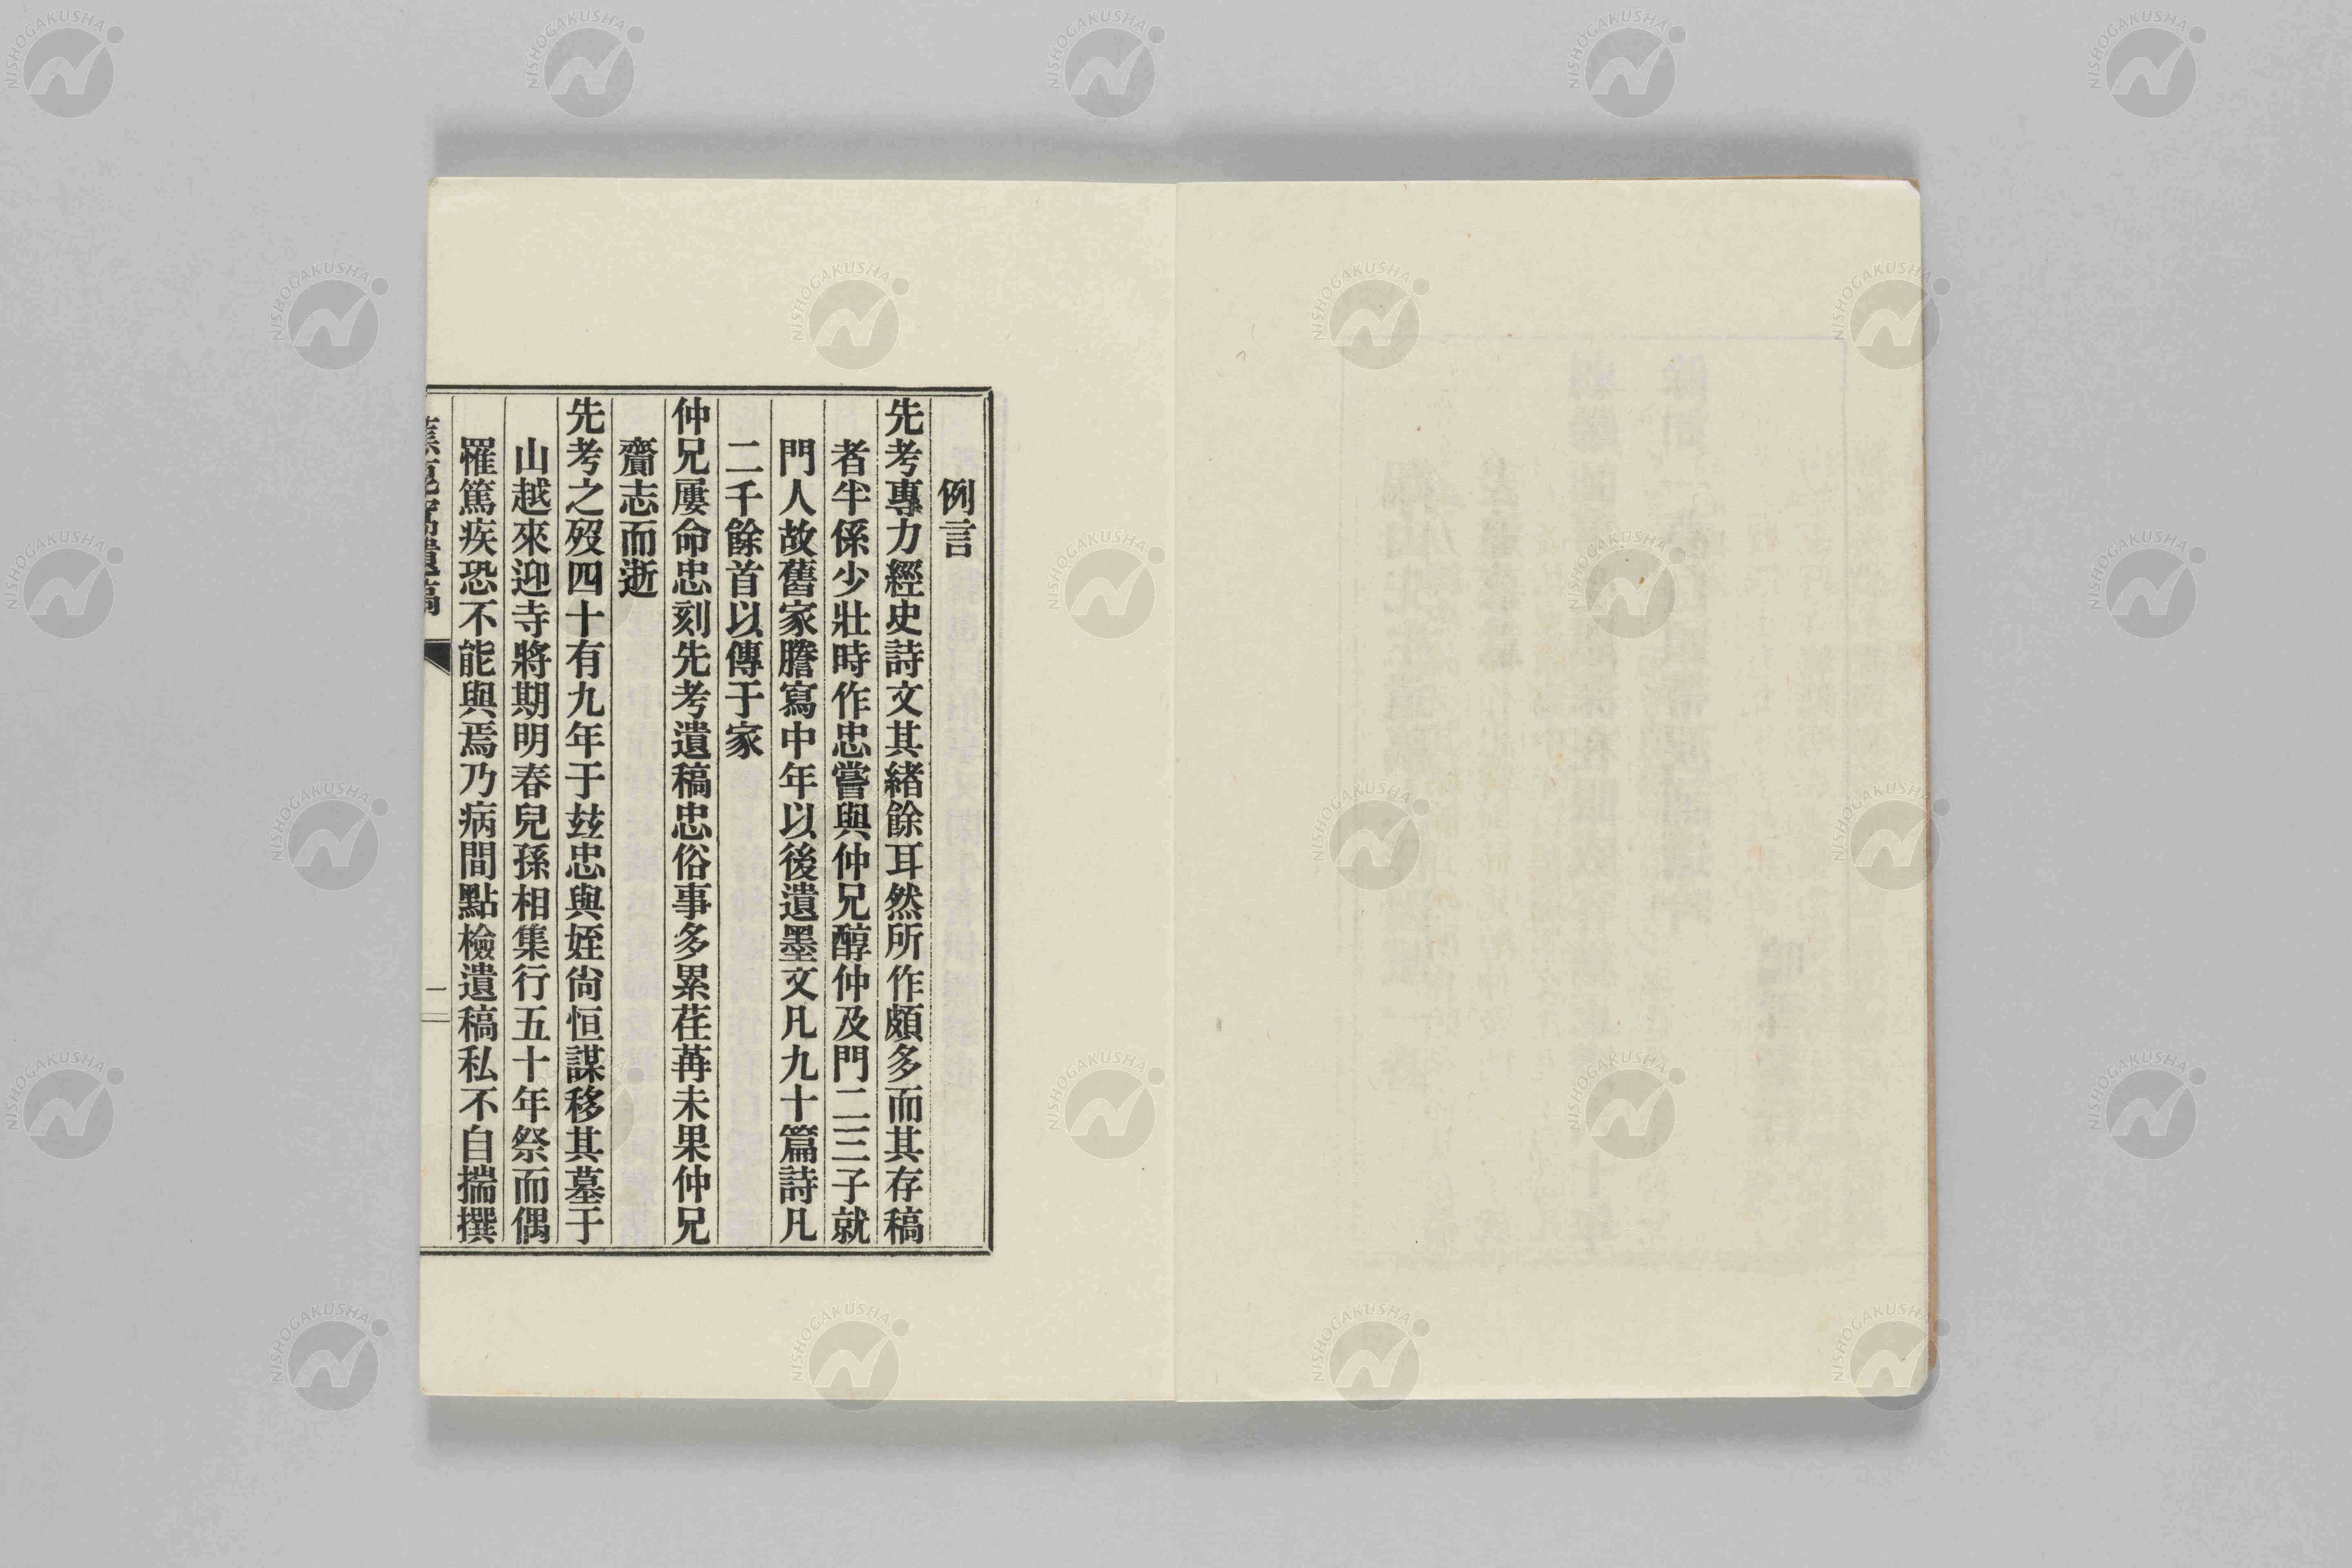 例言
先考專力經史詩文其緖餘耳然所作頗多而其存稿
者半係少壯時作忠嘗與仲兄醇仲及門二三子就
門人故舊家謄寫中年以後遺墨文凡九十篇詩凡
二千餘首以傳于家
仲兄屢命忠刻先考遺稿忠俗事多累荏苒未果仲兄
齎志而逝
先考之歿四十有九年于玆忠與姪尙恒謀移其墓于
山越來迎寺將期明春兒孫相集行五十年祭而偶
罹篤疾恐不能與焉乃病間點檢遺稿私不自揣撰
遺稿
一
NISHOGAKUSHA